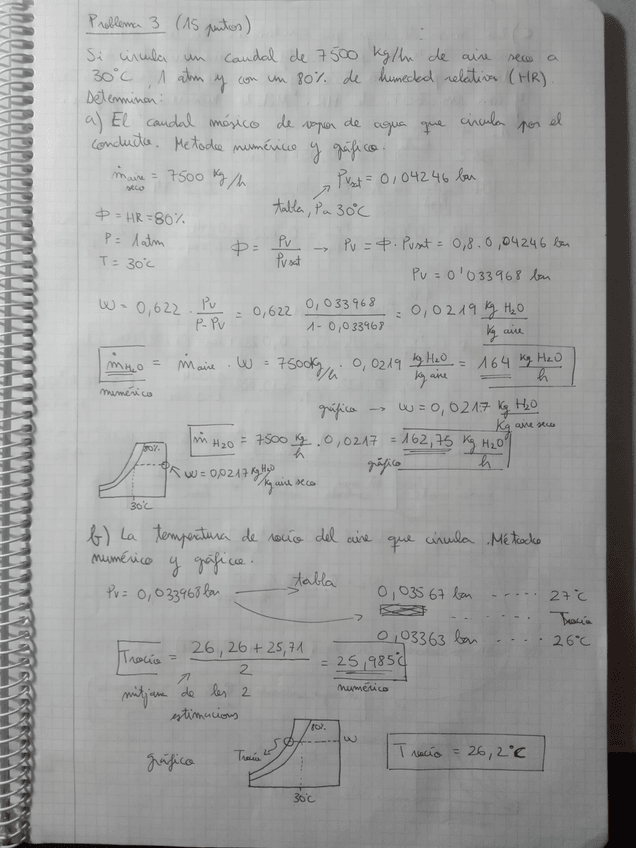 Problema 3 (15 puntos)
Si circula un caudal de 7500 kg/hr de aire seco a
30°C, 1 atm y con un 80% de humedad relativa (HR).
Determinar:
a) El caudal másico de vapor de agua que circula por el
conducto. Metodo numérico y gráfico.
ṁ aire seco = 7500 kg/h
Pvsat = 0,04246 bar
tabla, Pa 30°C
Φ = HR = 80%
P = 1 atm
T = 30°C
Φ = Pv / Pvsat → Pv = Φ · Pvsat = 0,8 · 0,04246 bar
Pv = 0'033968 bar
W = 0,622 · Pv / P-Pv = 0,622 0,033968 / 1-0,033968 = 0,0219 kg H2O / kg aire
ṁ H2O = ṁ aire · W = 7500 kg/h · 0,0219 kg H2O / kg aire = 164 kg H2O / h
numérico
gráfico → W = 0,0217 kg H2O / kg aire seco
ṁ H2O = 7500 kg/h · 0,0217 = 162,75 kg H2O / h
gráfico
80%
W = 0,0217 kg H2O / kg aire seco
30°C
b) La temperatura de rocío del aire que circula. Método
numérico y gráfico.
Pv = 0,033968 bar → tabla
0,03567 bar ..... 27°C
..... Trocío
0,03363 bar .... 26°C
Trocío = 26,26 + 25,71 / 2 = 25,985°C
numérico
mitjana de les 2
estimacions
gráfico
80%
Trocío
W
30°C
Trocío = 26,2°C